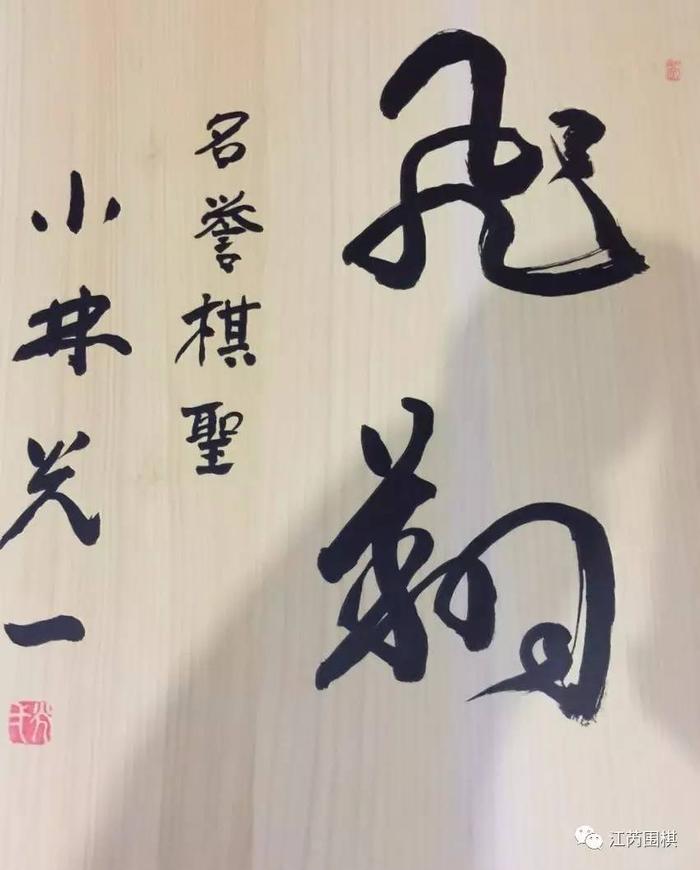 飛翔
名誉棋聖
小林光一
江芮围棋